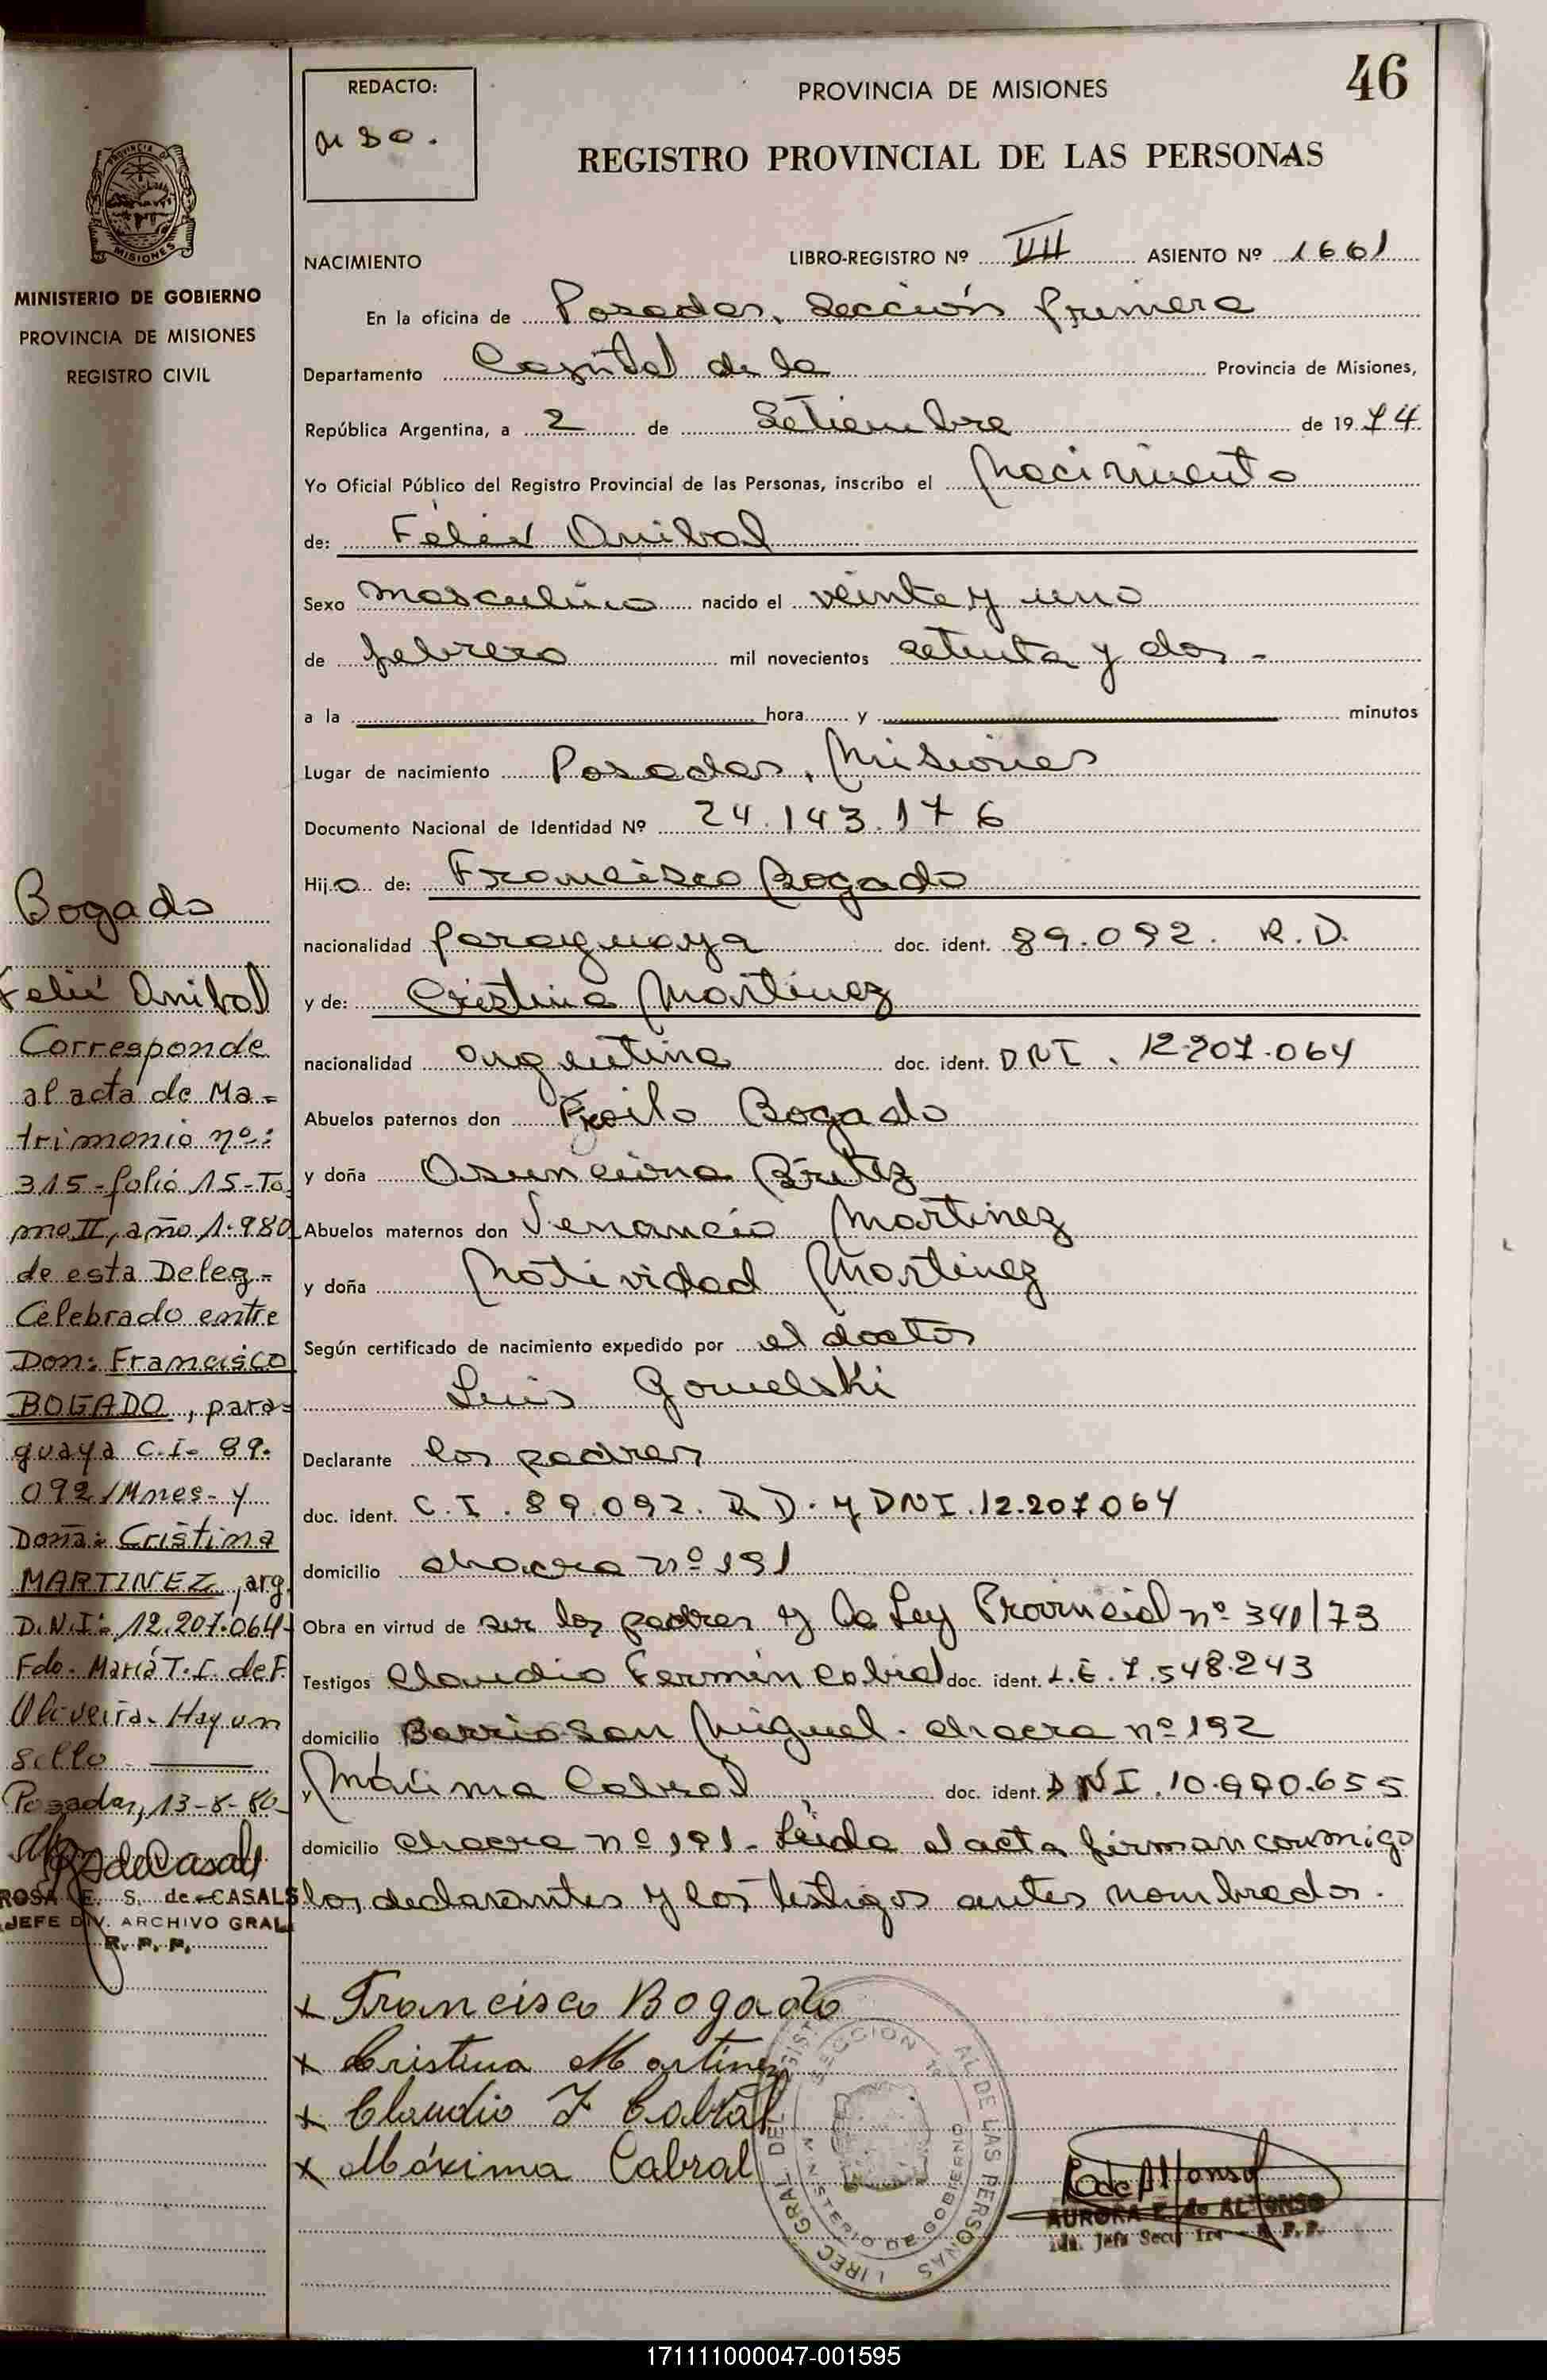 46
REDACTO:
PROVINCIA DE MISIONES
REGISTRO PROVINCIAL DE LAS PERSONAS
PROVINCIA DE
MISIONES
MINISTERIO DE GOBIERNO
PROVINCIA DE MISIONES
REGISTRO CIVIL
NACIMIENTO LIBRO-REGISTRO Nº VII ASIENTO Nº 1661
En la oficina de Posadas, Sección primera
Departamento Capital de la Provincia de Misiones,
República Argentina, a 2 de Setiembre de 1974
Yo Oficial Público del Registro Provincial de las Personas, inscribo el Nacimiento
de: Félix Anibal
Sexo masculino nacido el veinte y uno
de febrero mil novecientos setenta y dos -
a la hora y minutos
Lugar de nacimiento Posadas, Misiones
Documento Nacional de Identidad Nº 24.143.176
Hijo de: Francisco Bogado
nacionalidad paraguaya doc. ident. 89.092. R.D.
y de: Cristina Martinez
nacionalidad argentina doc. ident. DNI. 12.207.064
Abuelos paternos don Froilo Bogado
y doña Asunciona Britez
Abuelos maternos don Venancio Martinez
y doña Natividad Martinez
Según certificado de nacimiento expedido por el doctor
Luis Gomelski
Declarante los padres
doc. ident. C.I. 89.092. R.D. y DNI. 12.207064
domicilio chacra nº 191
Obra en virtud de ser los padres y la Ley Provincial nº 341/73
Testigos Claudio Fermín Cabral doc. ident. L.E. 7.548.243
domicilio Barrio San Miguel - chacra nº 192
y Máxima Cabral doc. ident. DNI. 10.990.655
domicilio chacra nº 191 - Leida el acta firman conmigo
los declarantes y los testigos antes nombrados.
Francisco Bogado
Cristina Martinez
Claudio F Cabral
Máxima Cabral
Bogado
Felix Anibal
Corresponde
al acta de Ma=
trimonio nº:
315-folio 15-To
mo II, año 1.980
de esta Deleg-
Celebrado entre
Don: Francisco
BOGADO, para=
guaya C.I- 89.
092/Mnes- y
Doña: Cristina
MARTINEZ, arg.
D.N.I: 12.207.064-
Fdo. María T. I. de F.
Oliveira. Hay un
sello
Posadas, 13-8-80-
ROSA E. S. de CASALS
JEFE DIV. ARCHIVO GRAL
R. P. P.
SECCION 1a
MINISTERIO DE GOBIERNO
AURORA E. de ALFONSO
171111000047-001595